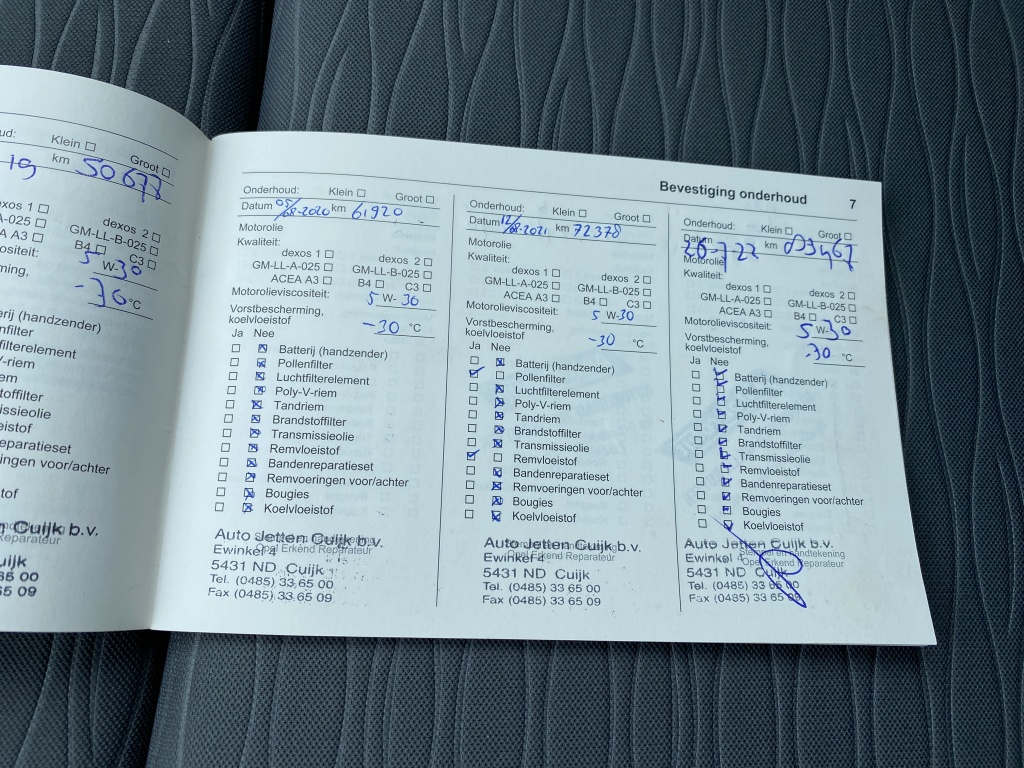 Bevestiging onderhoud 7
ud: Klein ☐ Groot ☐
19 km 50677
exos 1 ☐ dexos 2 ☐
A-025 ☐ GM-LL-B-025 ☐
A A3 ☐ B4 ☐ C3 ☐
ositeit: 5 W-30
ming,
-30 °C
rij (handzender)
nfilter
filterelement
V-riem
em
toffilter
missieolie
eistof
eparatieset
ringen voor/achter
stof
Cuijk b.v.
Reparateur
uijk
65 00
65 09
Onderhoud: Klein ☐ Groot ☐
Datum 05/08-2020 km 61920
Motorolie
Kwaliteit:
dexos 1 ☐ dexos 2 ☐
GM-LL-A-025 ☐ GM-LL-B-025 ☐
ACEA A3 ☐ B4 ☐ C3 ☐
Motorolieviscositeit: 5 W-30
Vorstbescherming,
koelvloeistof -30 °C
Ja Nee
☐ ☒ Batterij (handzender)
☐ ☒ Pollenfilter
☐ ☒ Luchtfilterelement
☐ ☒ Poly-V-riem
☐ ☒ Tandriem
☐ ☒ Brandstoffilter
☐ ☒ Transmissieolie
☐ ☒ Remvloeistof
☐ ☒ Bandenreparatieset
☐ ☒ Remvoeringen voor/achter
☐ ☒ Bougies
☐ ☒ Koelvloeistof
Auto Jetten Cuijk b.v.
Stempel en handtekening
Ewinkel 4
Opel Erkend Reparateur
5431 ND Cuijk
Tel. (0485) 33 65 00
Fax (0485) 33 65 09
Onderhoud: Klein ☐ Groot ☐
Datum 12/08-2021 km 72378
Motorolie
Kwaliteit:
dexos 1 ☐ dexos 2 ☐
GM-LL-A-025 ☐ GM-LL-B-025 ☐
ACEA A3 ☐ B4 ☐ C3 ☐
Motorolieviscositeit: 5 W-30
Vorstbescherming,
koelvloeistof -30 °C
Ja Nee
☐ ☒ Batterij (handzender)
☑ ☐ Pollenfilter
☐ ☒ Luchtfilterelement
☐ ☒ Poly-V-riem
☐ ☒ Tandriem
☐ ☒ Brandstoffilter
☐ ☒ Transmissieolie
☑ ☐ Remvloeistof
☐ ☒ Bandenreparatieset
☐ ☒ Remvoeringen voor/achter
☐ ☒ Bougies
☐ ☒ Koelvloeistof
Auto Jetten Cuijk b.v.
Ewinkel 4
5431 ND Cuijk
Tel. (0485) 33 65 00
Fax (0485) 33 65 09
Onderhoud: Klein ☐ Groot ☐
Datum 26-7-22 km 83467
Motorolie
Kwaliteit:
dexos 1 ☐ dexos 2 ☐
GM-LL-A-025 ☐ GM-LL-B-025 ☐
ACEA A3 ☐ B4 ☐ C3 ☐
Motorolieviscositeit: 5 W-30
Vorstbescherming,
koelvloeistof -30 °C
Ja Nee
☐ ☑ Batterij (handzender)
☐ ☑ Pollenfilter
☐ ☑ Luchtfilterelement
☐ ☑ Poly-V-riem
☐ ☑ Tandriem
☐ ☑ Brandstoffilter
☐ ☑ Transmissieolie
☐ ☑ Remvloeistof
☐ ☑ Bandenreparatieset
☐ ☑ Remvoeringen voor/achter
☐ ☑ Bougies
☐ ☑ Koelvloeistof
Auto Jetten Cuijk b.v.
Stempel en handtekening
Ewinkel 4
Opel Erkend Reparateur
5431 ND Cuijk
Tel. (0485) 33 65 00
Fax (0485) 33 65 09